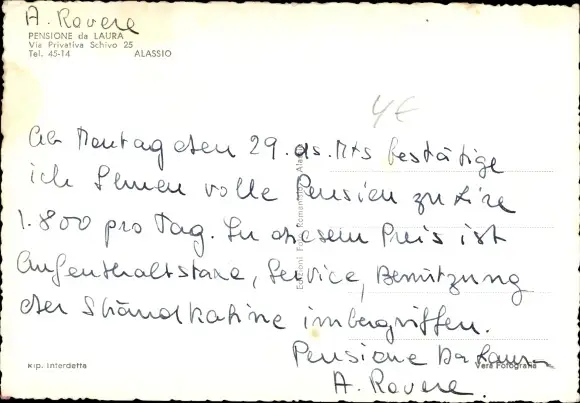 A. Rovere
PENSIONE da LAURA
Via Privativa Schivo 25
Tel. 45-14 ALASSIO
4 €
Ab Montag den 29. ds. Mts bestätige
ich Ihnen volle Pension zu Lire
1.800 pro Tag. In diesem Preis ist
Aufenthaltstaxe, Service, Benützung
der Strandkabine imbegriffen.
Pensione Da Laura
A. Rovere.
Rip. Interdetta
Vera Fotografia
Edizioni Foto